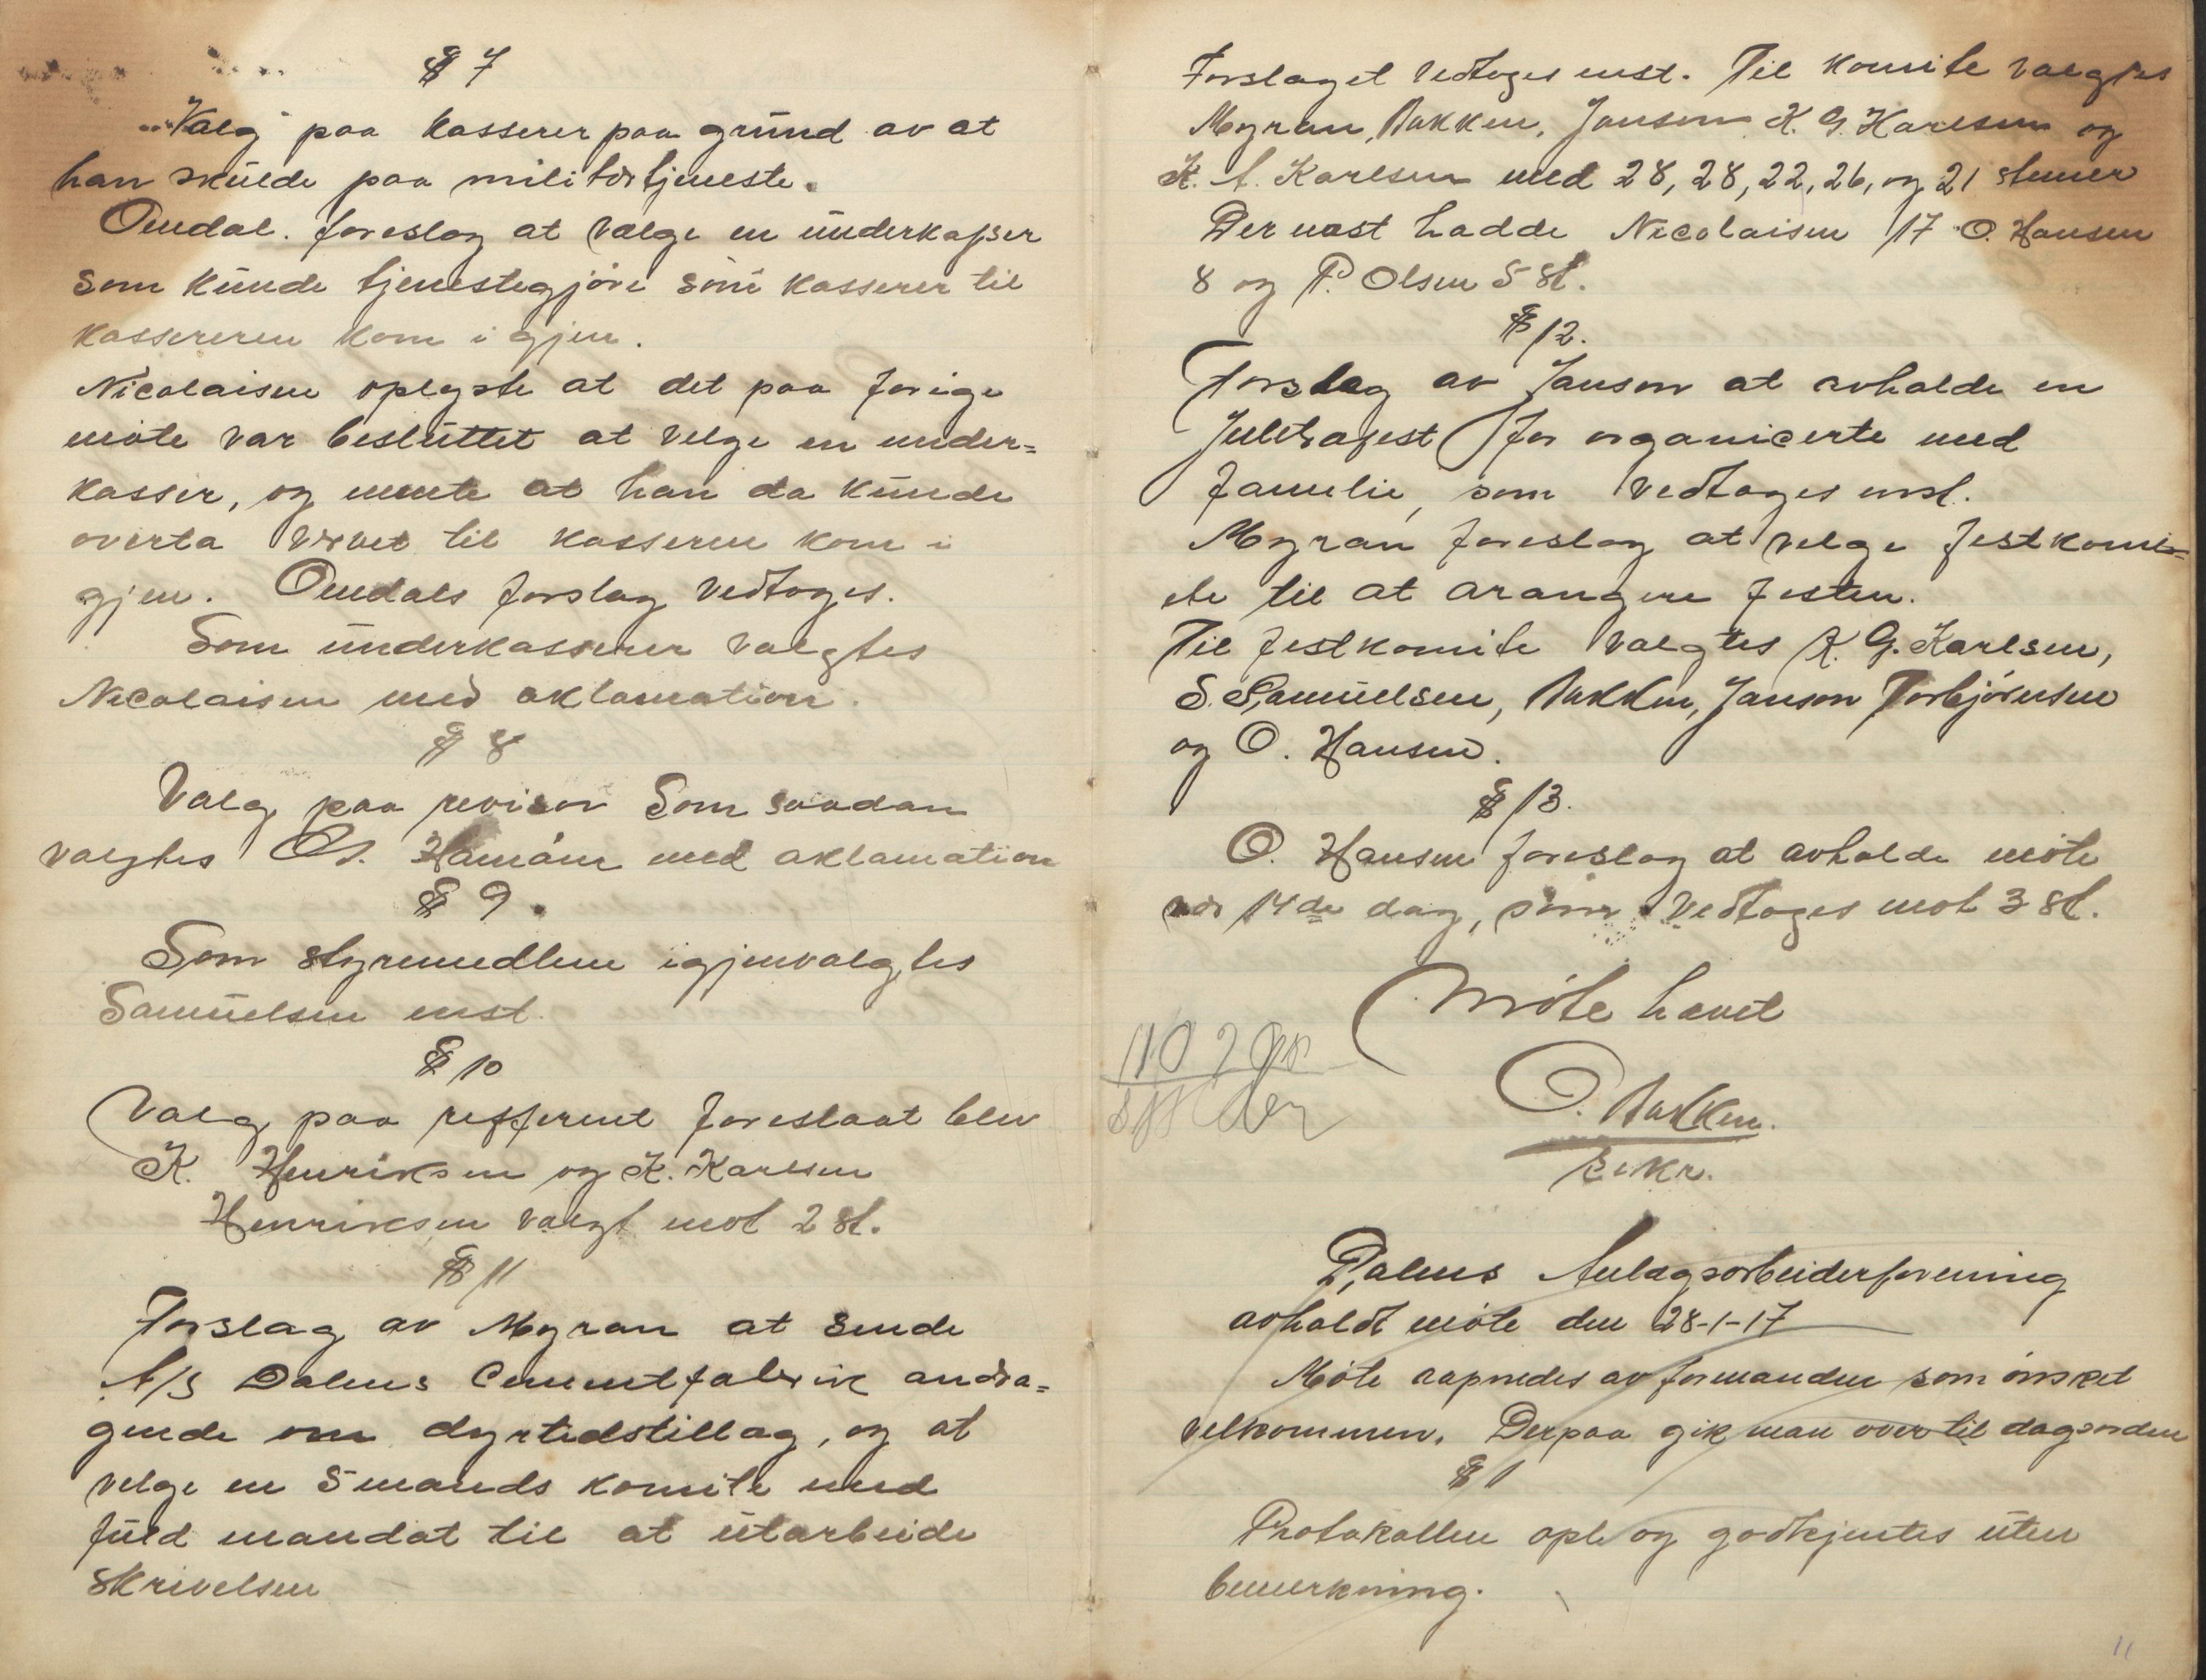 § 7
Valg paa kasserer paa grund av at
han skulde paa militærtjeneste.
Omdal. foreslog at vælge en underkasser
som kunde tjenestegjøre som kasserer til
kassereren kom i gjen.
Nicolaisen oplyste at det paa forige
møte var besluttet at velge en under=
kasser, og mente at han da kunde
overta vervet til kasseren kom i
gjen. Omdals forslag vedtoges.
Som underkasserer valgtes
Nicolaisen med aklamation.
§ 8
Valg paa revisor Som saadan
valgtes med aklamation
§ 9.
Som styremedlem igjenvalgtes
Samuelsen enst.
§ 10
Valg paa refferent foreslaat blev
K. Henriksen og K. Karlsen
Henriksen valgt mot 2 st.
§ 11
Forslag av Myran at sende
A/S Dalens Cementfabrik andra=
gende om dyrtidstillag, og at
velge en 5 mands komite med
fuld mandat til at utarbeide
skrivelsen
Forslaget vedtoges enst. Til komite valgtes
Myran, Bakken, Janson K. G. Karlsen og
K. A. Karlsen med 28, 28, 22, 26, og 21 stemer
Der næst hadde Nicolaisen 17 O. Hansen
8 og P. Olsen 5 st.
§ 12.
Forslag av Janson at avholde en
Juletrafest for organicerte med
familie, som vedtoges enst.
Myran foreslog at velge festkomi=
te til at arangere festen.
Til festkomite valgtes K. G. Karlsen,
S. Samuelsen, Bakken, Janson Torbjørnsen
og O. Hansen.
§ 13.
O. Hansen foreslog at avholde møte
vær 14de dag, som vedtoges mot 3 st.
Møte hævet
O. Bakken.
Sekr.
Dalens Anlægsarbeiderforening
avholdt møte den 28-1-17
Møte aapnedes av formanden som ønsket
velkommen. Derpaa gik man over til dagsorden
§ 1
Protokollen opl. og godkjentes uten
bemerkning.
11